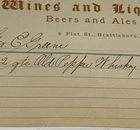 Wines and Liq
Beers and Ales
8 Flat St., Brattleboro,
E. Crane
2 qts Old Pepper Whiskey